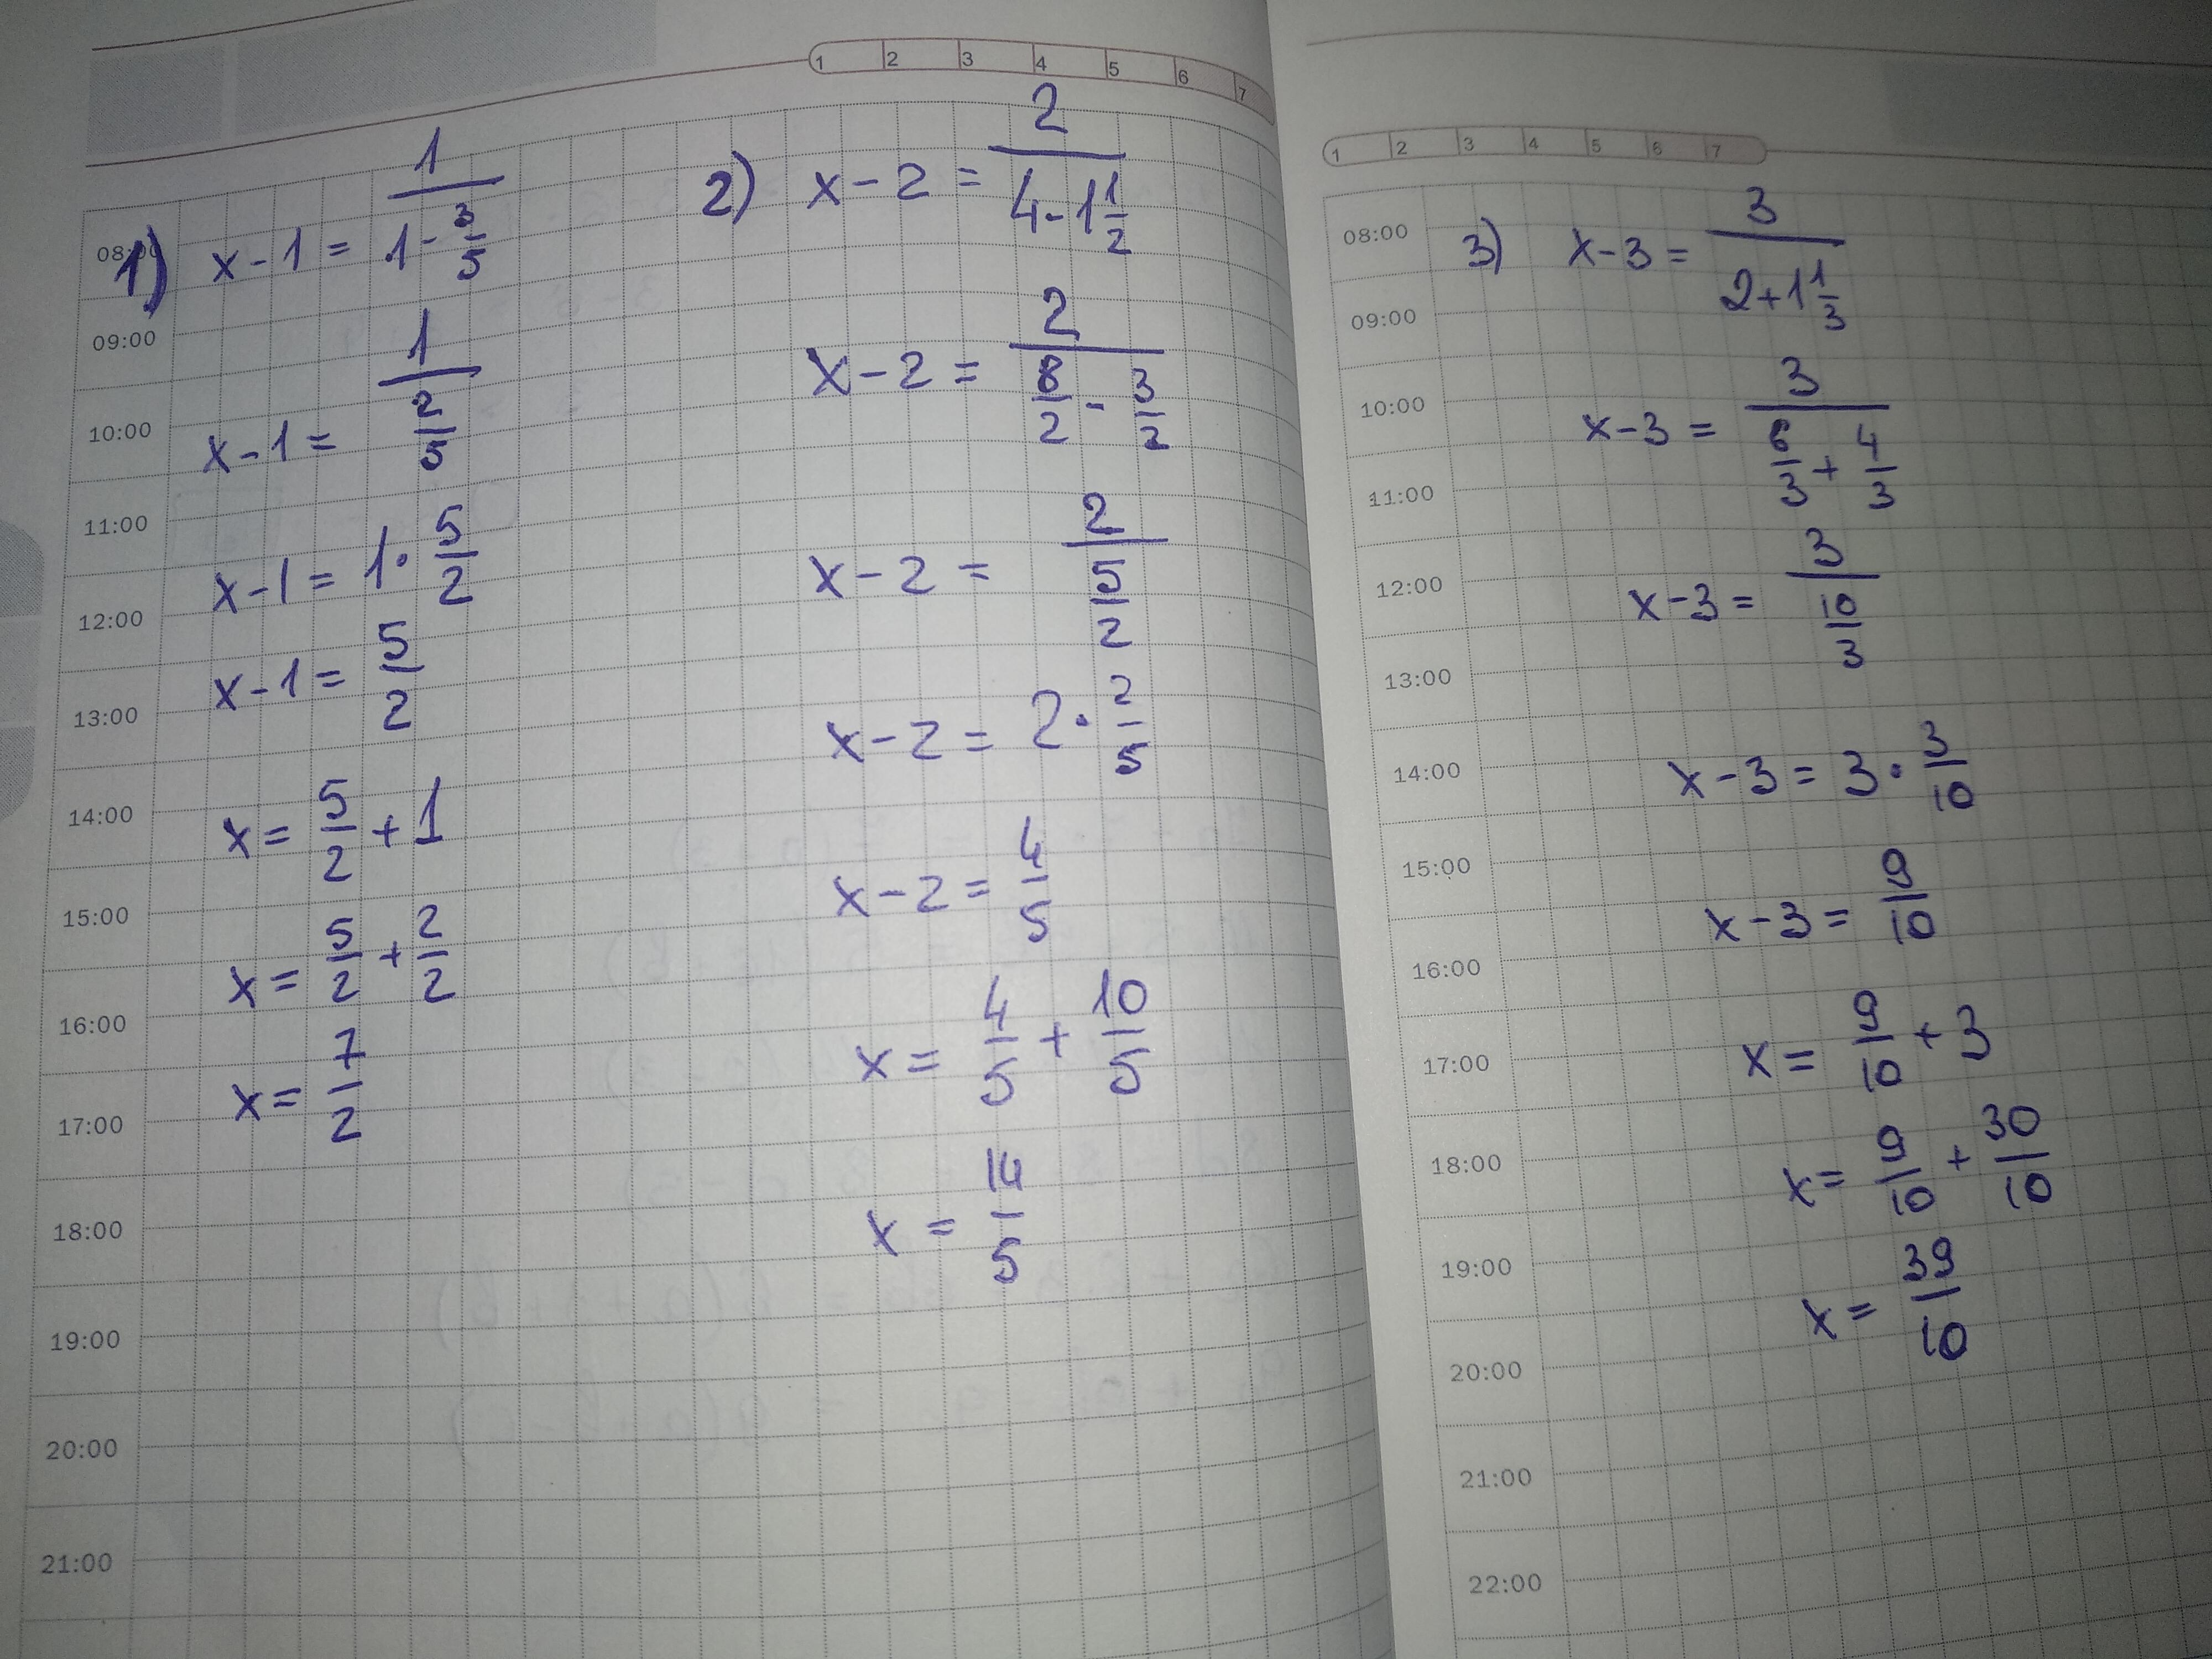 1 2 3 4 5 6 7
1) x-1 = 1/(1-3/5)
x-1 = 1/(2/5)
x-1 = 1·5/2
x-1 = 5/2
x = 5/2 + 1
x = 5/2 + 2/2
x = 7/2
2) x-2 = 2/(4-1 1/2)
x-2 = 2/(8/2 - 3/2)
x-2 = 2/(5/2)
x-2 = 2·2/5
x-2 = 4/5
x = 4/5 + 10/5
x = 14/5
08:00
09:00
10:00
11:00
12:00
13:00
14:00
15:00
16:00
17:00
18:00
19:00
20:00
21:00
1 2 3 4 5 6 7
3) x-3 = 3/(2+1 1/3)
x-3 = 3/(6/3 + 4/3)
x-3 = 3/(10/3)
x-3 = 3·3/10
x-3 = 9/10
x = 9/10 + 3
x = 9/10 + 30/10
x = 39/10
08:00
09:00
10:00
11:00
12:00
13:00
14:00
15:00
16:00
17:00
18:00
19:00
20:00
21:00
22:00